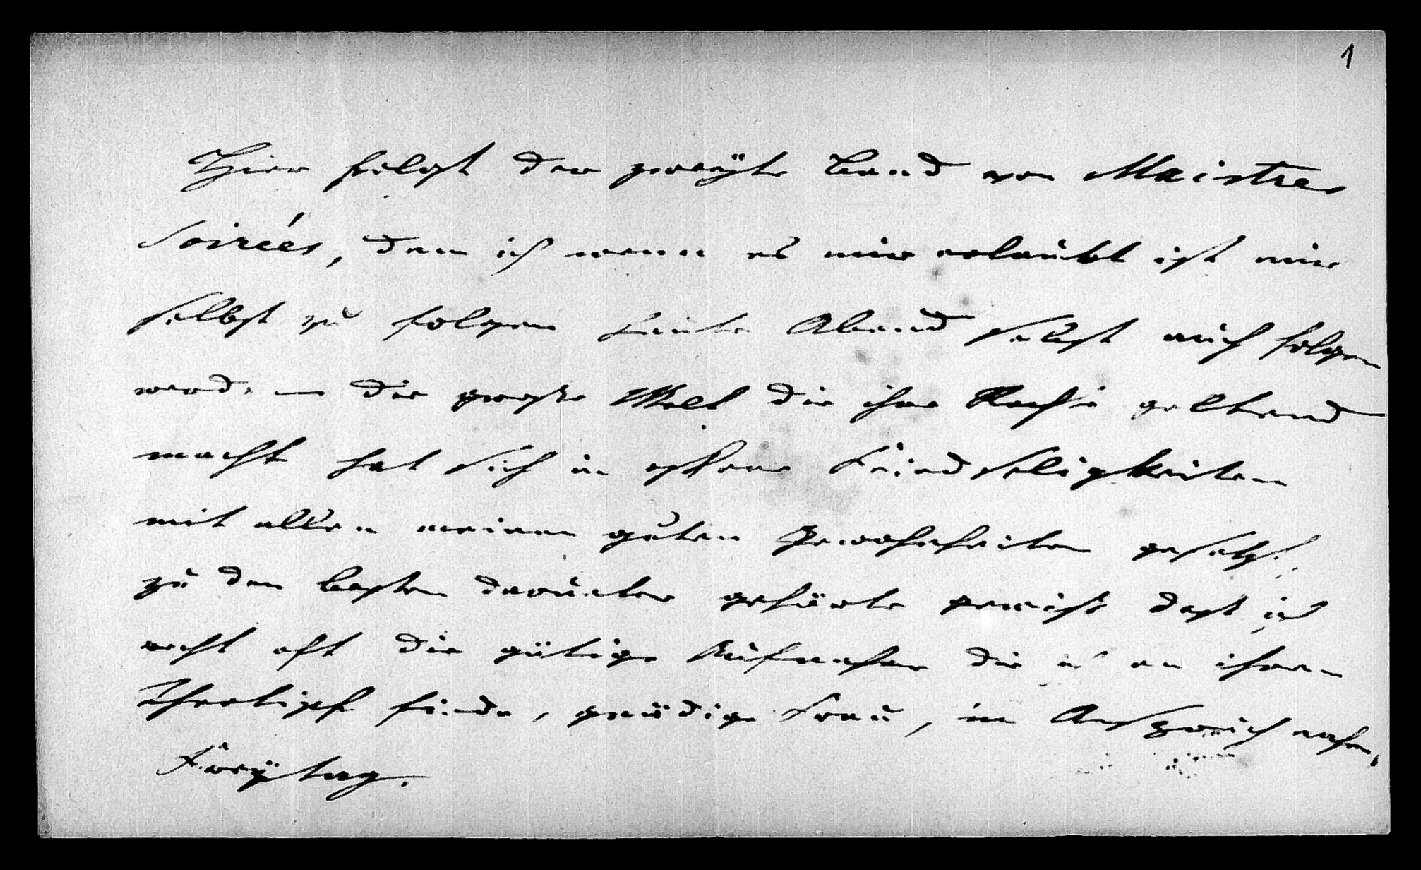 1
Hier folgt der zweyte Band von Maistres
Soirées, dem ich wenn es mir erlaubt ist mir
selbst zu folgen heute Abend selbst auch folgen
werde die große Welt die ihre Rechte geltend
macht hat sich in offene Feindseligkeiten
mit allen meinen guten Gewohnheiten gesetzt.
zu den besten darunter gehörte gewiß daß ich
recht oft die gütige Aufnahme die ich an ihrem
Theetisch finde, gnädige Frau, in Anspruch nahm,
Freytag.